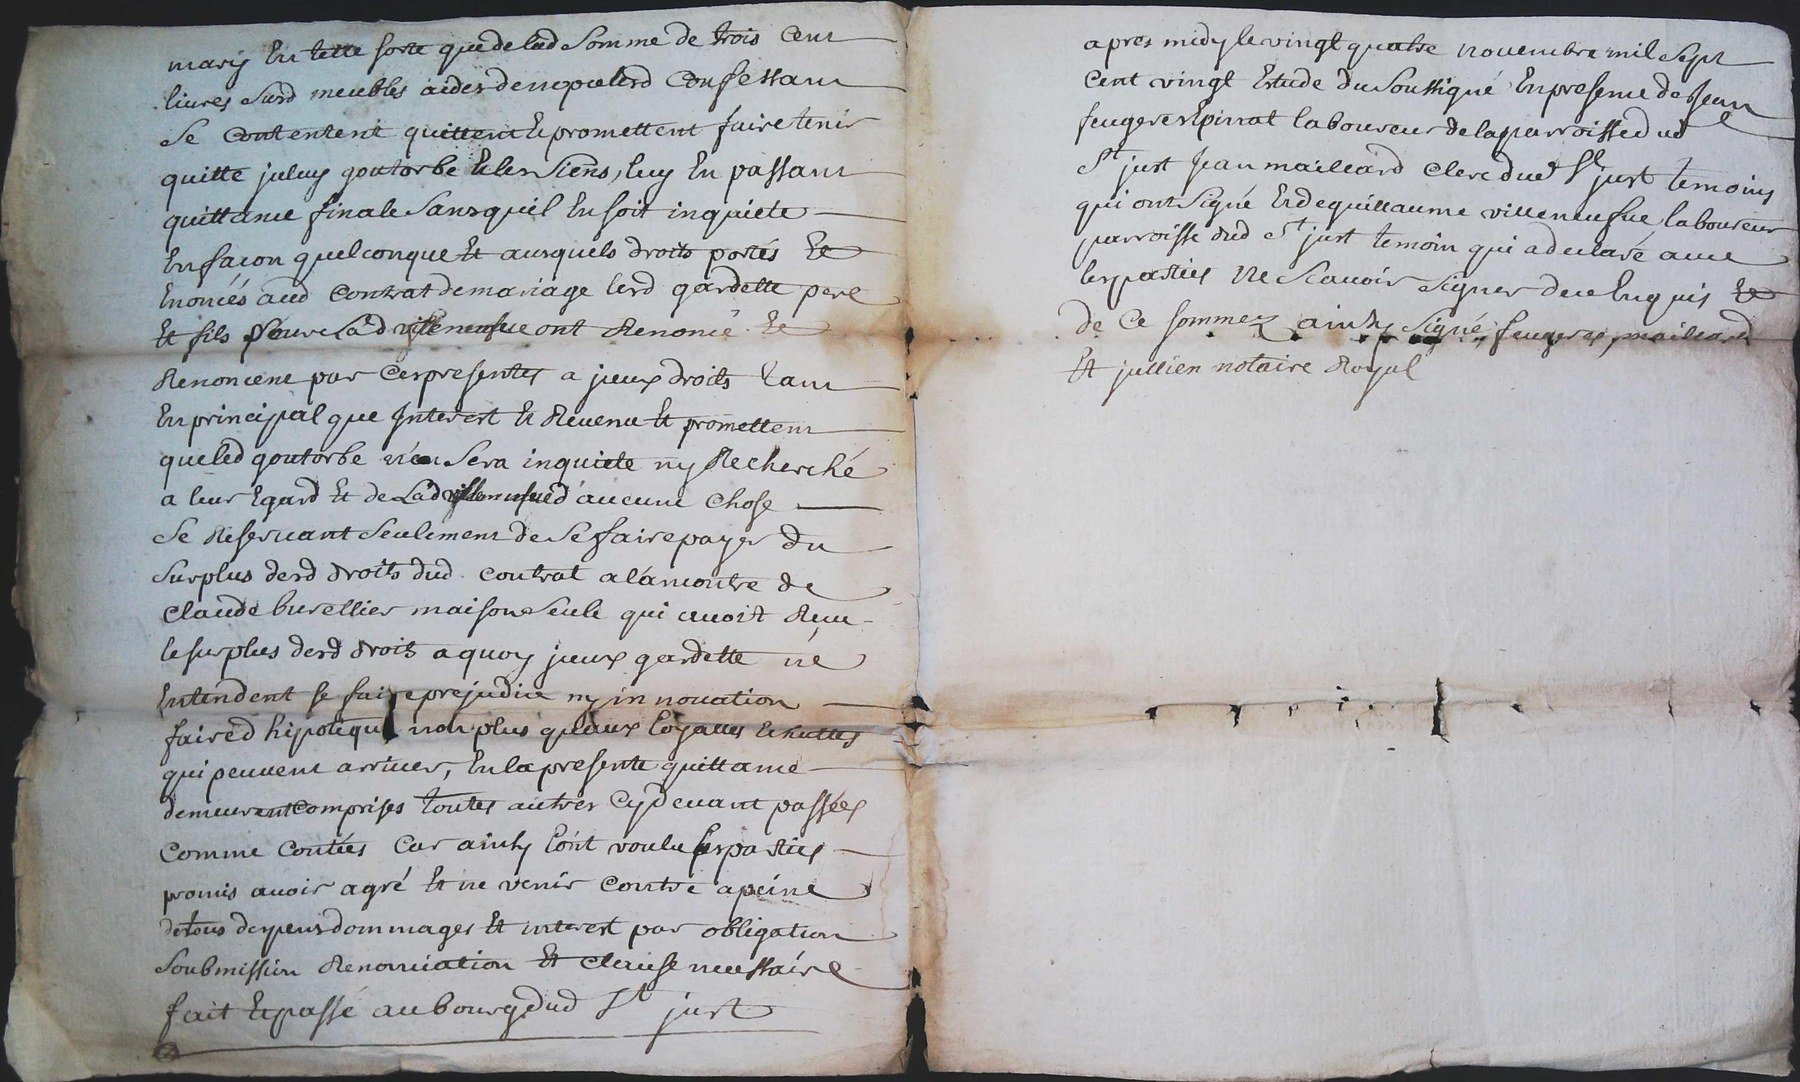 mary En tette sorte que de lad somme de trois Cent
livres Surd meubles aides denopce lesd Confessant
Se Contentent quittent Et promettent faire tenir
quitte jceluy goutorbe Et les Siens, luy En passant
quittance finale Sans quil En soit inquieté
En facon quelconque Et ausquels droits portés Et
Enoncés aud Contrat de mariage lesd gardette pere
Et fils Pour La d villeneufue ont Renoncé Et
Renoncent par Ces presentes a jceux droits tant
En principal que Interest Et Revenu Et promettent
que led goutorbe n'en Sera inquiete ny Recherché
a leur Egard Et de La d villeneufue d'aucune Chose
Se Reservant Seulement de Se faire payer du
Surplus desd droits dud Contrat a lamontre de
Claude burellier maison Seule qui avoit Receu
le surplus desd droits a quoy jceux gardette ne
Entendent se faire prejudice ny innovation
faire d hipoteque non plus qu'aux loyalles Echuttes
qui peuvent arriver, En la presente quittance
demeurant Comprises toutes autres Cy devant passées
Comme Contées Car ainsy L'ont voulu les parties
promis avoir agré Et ne venir Contre a peine
de tous depens dommages Et interest par obligation
Soubmission Renonciation Et Clause necessaire
fait Et passé au bourg dud St just
apres midy le vingt quatre novembre mil Sept
Cent vingt Estude du Soussigné En presence de Jean
feugere Epinat laboureur de la parroisse dud
St just Jean maillard Clerc dud St just temoins
qui ont Signé Et de guillaume villeneufue laboureur
parroisse dud St just temoin qui a declaré avec
les parties ne Scavoir Signer de ce Enquis Et
de Ce sommez ainsy Signé, feugere, maillard
Et jullien notaire Royal